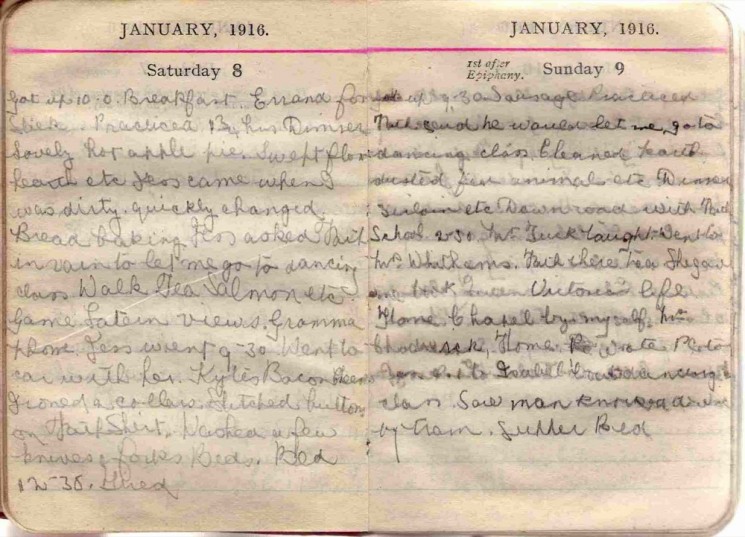 JANUARY, 1916.
Saturday 8
Got up 10.0. Breakfast. Errand for
Practiced 3/4 hrs Dinner
Lovely hot apple pie. Swept floor
hearth etc Jess came when I
was dirty, quickly changed.
Bread baking. Jess asked
in vain to let me go to dancing
class. Walk Tea Salmon etc
Game Latern views. Gramma
phone. Jess went 9-30. Went to
car with her. Bacon
Ironed a collar. Stitched button
on Shirt. Washed a few
knives & forks Beds. Bed
12-30. Tired
JANUARY, 1916.
1st after
Epiphany.
Sunday 9
Got up 9.30 Sausage Practiced
said he would let me go to
dancing class Cleaned hearth
dusted animal etc Dinner
Sirloin etc Down road with
School 2.30. Mr. Tuck taught Went to
Mrs there Tea
book Queen Victoria's life
Home. Chapel by myself. Mr
Chadwick. Home. Re wrote
to dancing
class. Saw man knocked down
by tram. Supper Bed